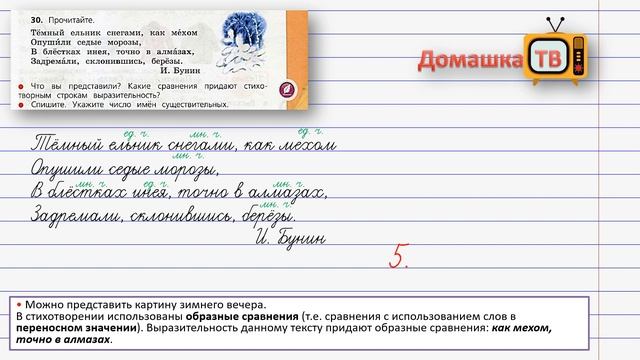 30. Прочитайте.
Тёмный ельник снегами, как ме́хом
Опуши́ли седые морозы,
В блёстках инея, точно в алма́зах,
Задрема́ли, склонившись, берёзы.
И. Бунин
• Что вы представили? Какие сравнения придают стихо-
творным строкам выразительность?
• Спишите. Укажите число имён существительных.
Домашка
ТВ
ед. ч. мн. ч. ед. ч.
Тёмный ельник снегами, как мехом
мн. ч.
Опушили седые морозы,
мн. ч. ед. ч. мн. ч.
В блёстках инея, точно в алмазах,
мн. ч.
Задремали, склонившись, берёзы.
И. Бунин
5.
• Можно представить картину зимнего вечера.
В стихотворении использованы образные сравнения (т.е. сравнения с использованием слов в
переносном значении). Выразительность данному тексту придают образные сравнения: как мехом,
точно в алмазах.